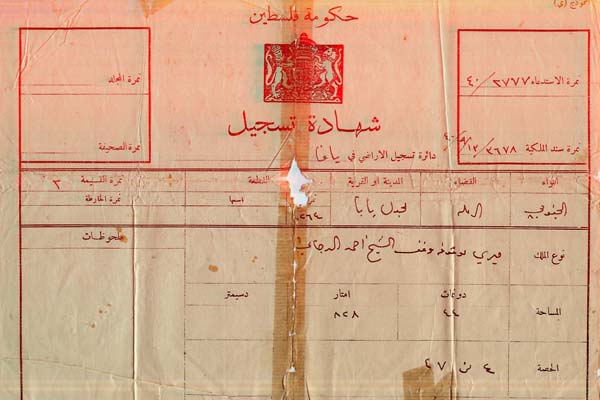 نموذج (ي)
حكومة فلسطين
نمرة الاستدعاء ٢٧٧٧/٤٠
نمرة المجلد
شهادة تسجيل
نمرة سند الملكية ٣٦٧٨
دائرة تسجيل الاراضي في يافا
نمرة الصحيفة
اللواء القضاء المدينة او القرية القطعة نمرة القسيمة ٣
اسمها نمرة الخارطة
الرملة مجدل يابا
نوع الملك ميري وقف الشيخ احمد الدجاني ملحوظات
دونمات امتار دسيمتر
المساحة ٤٤ ٨٢٨
الحصة ٤ من ٢٧